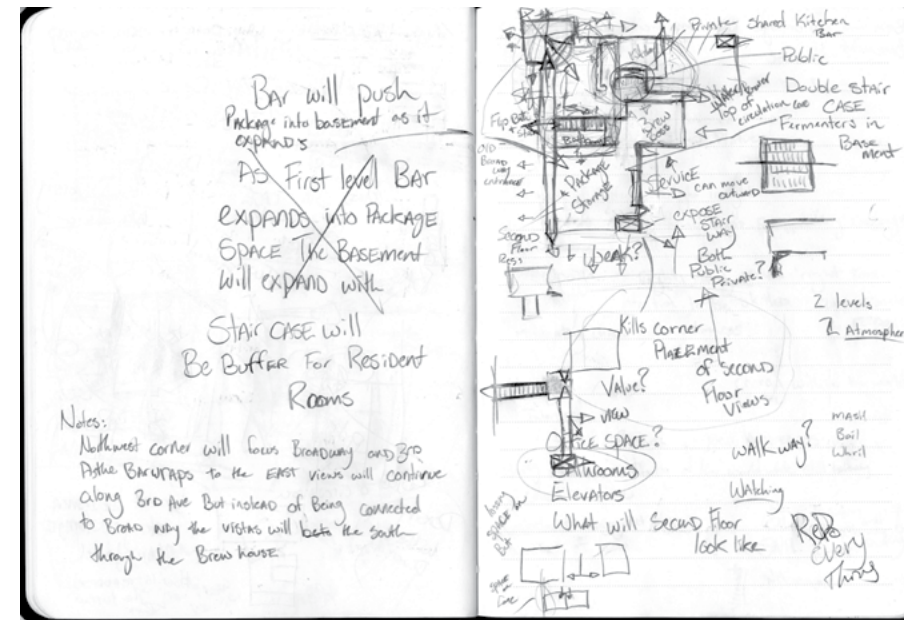 Bar will push
Package into basement as it
expands
As First level Bar
expands into Package
Space The Basement
will expand with
Stair case will
Be Buffer For Resident
Rooms
Notes:
Northwest corner will focus Broadway and 3rd
As the Bar wraps to the East views will continue
along 3rd Ave But instead of Being connected
to Broad way the vistas will be to the South
through the Brew house
Private shared Kitchen
Bar
Public
Double Stair
Case
Top of
circulation
Fermenters in
Base
ment
Old
Broad
way
entrance
Package
Storage
Service
can move
outward
expose
Stair
way
Both
Public
Private?
Second
Floor
Ress
Weak?
2 levels
Atmosphere
Kills corner
Placement
of second
Floor
Views
Value?
View
Office Space?
Bathrooms
Elevators
What will Second Floor
look like
Walk way?
Mash
Boil
Whirl
Watching
Redo
Every
Thing